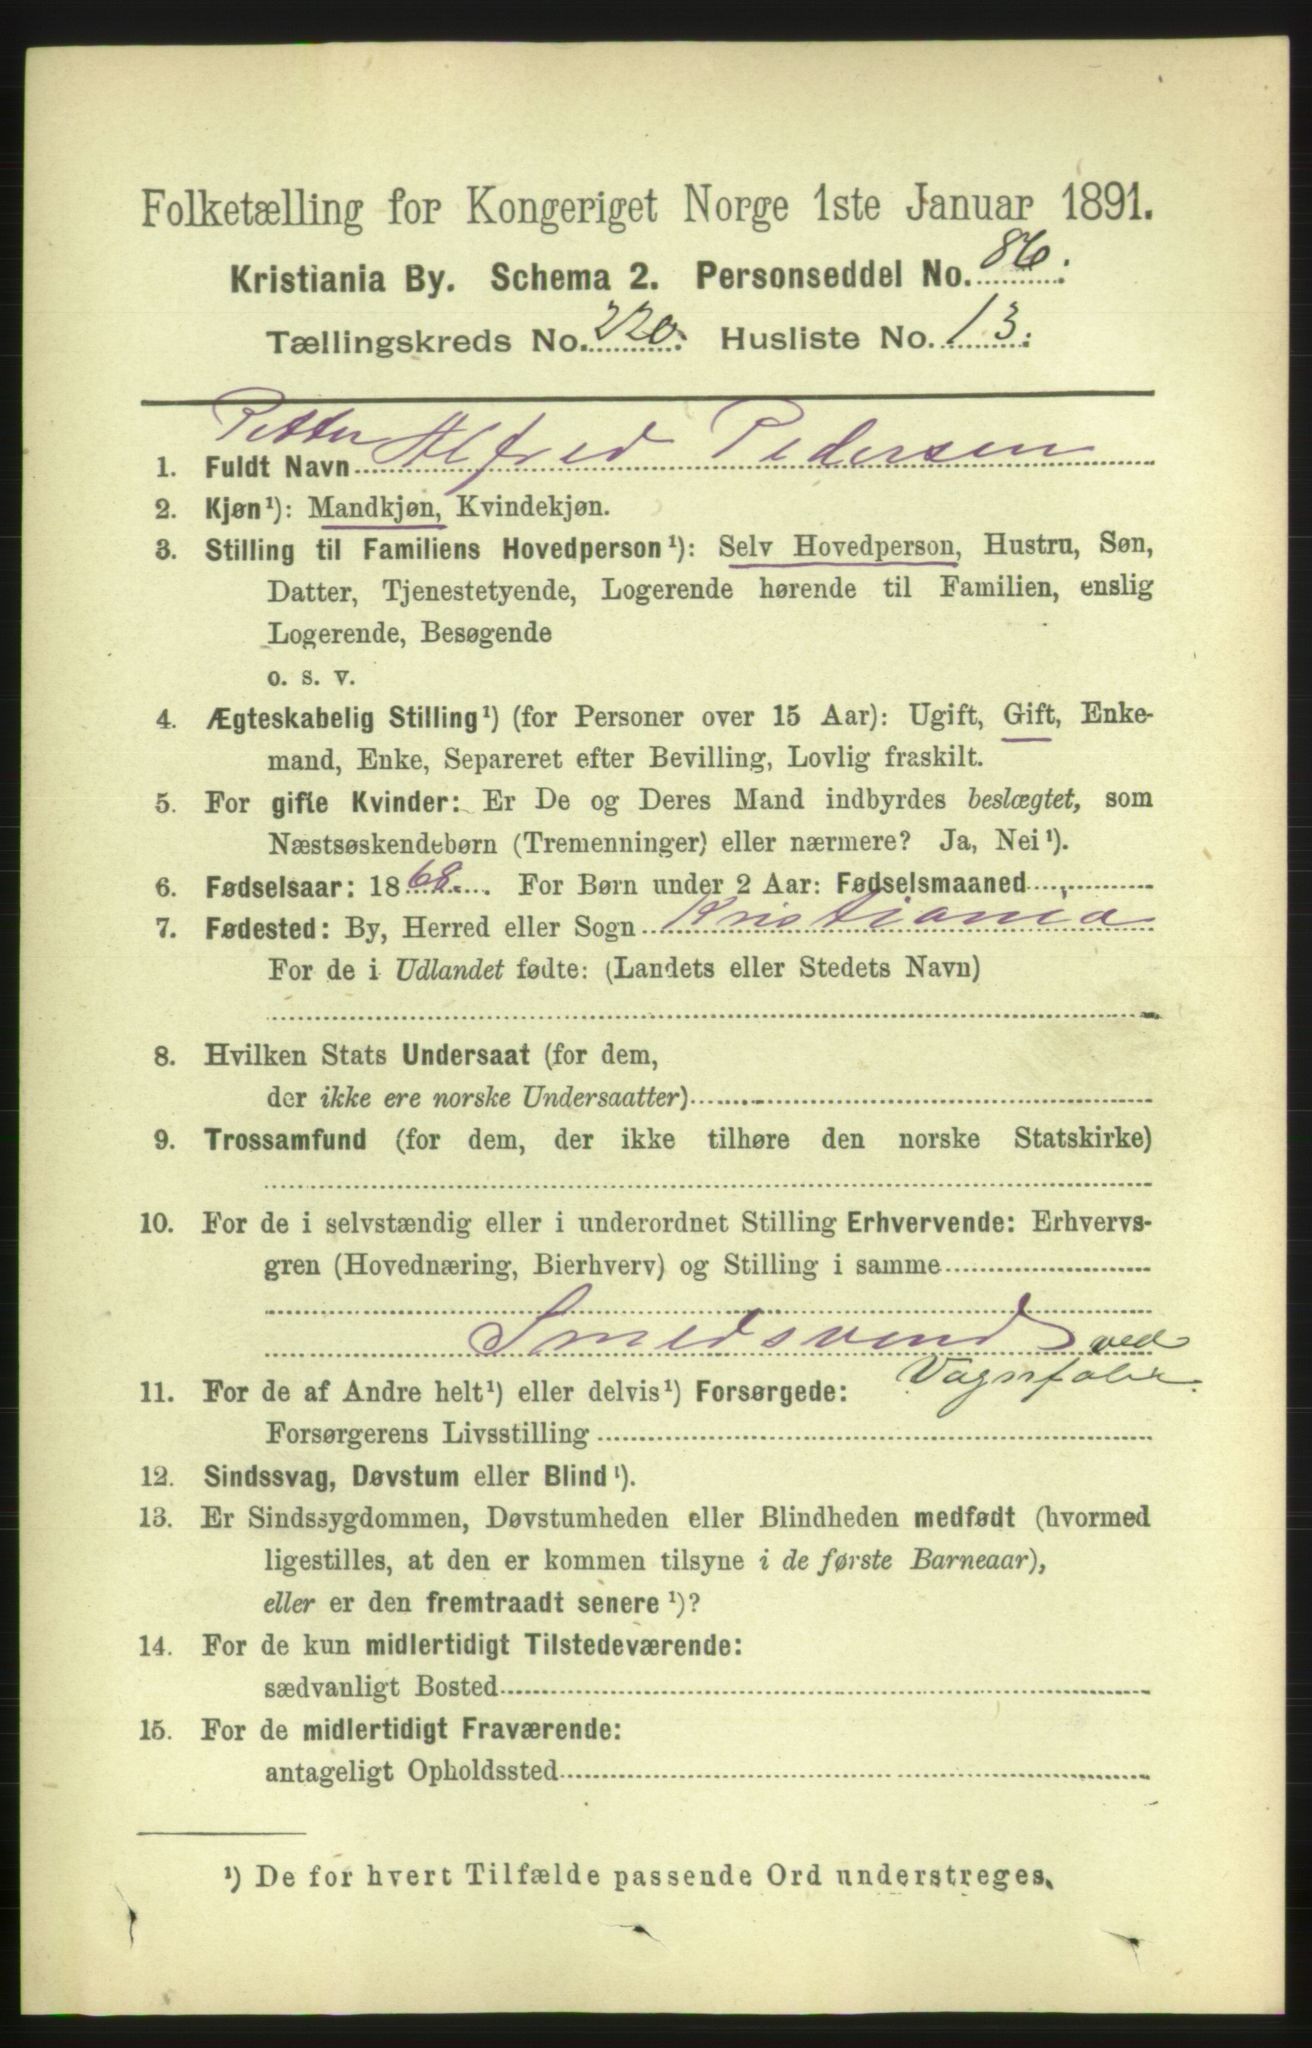 Folketælling for Kongeriget Norge 1ste Januar 1891.
Kristiania By. Schema 2. Personseddel No. 86.
Tællingskreds No. 220. Husliste No. 13.
1. Fuldt Navn Petter Alfred Pedersen
2. Kjøn¹): Mandkjøn, Kvindekjøn.
3. Stilling til Familiens Hovedperson¹): Selv Hovedperson, Hustru, Søn,
Datter, Tjenestetyende, Logerende hørende til Familien, enslig
Logerende, Besøgende
o. s. v.
4. Ægteskabelig Stilling¹) (for Personer over 15 Aar): Ugift, Gift, Enke-
mand, Enke, Separeret efter Bevilling, Lovlig fraskilt.
5. For gifte Kvinder: Er De og Deres Mand indbyrdes beslægtet, som
Næstsøskendebørn (Tremenninger) eller nærmere? Ja, Nei¹).
6. Fødselsaar: 1868. For Børn under 2 Aar: Fødselsmaaned
7. Fødested: By, Herred eller Sogn Kristiania
For de i Udlandet fødte: (Landets eller Stedets Navn)
8. Hvilken Stats Undersaat (for dem,
der ikke ere norske Undersaatter)
9. Trossamfund (for dem, der ikke tilhøre den norske Statskirke)
10. For de i selvstændig eller i underordnet Stilling Erhvervende: Erhvervs-
gren (Hovednæring, Bierhverv) og Stilling i samme
Smedsvend ved
Vognfabr.
11. For de af Andre helt¹) eller delvis¹) Forsørgede:
Forsørgerens Livsstilling
12. Sindssvag, Døvstum eller Blind¹).
13. Er Sindssygdommen, Døvstumheden eller Blindheden medfødt (hvormed
ligestilles, at den er kommen tilsyne i de første Barneaar),
eller er den fremtraadt senere¹)?
14. For de kun midlertidigt Tilstedeværende:
sædvanligt Bosted
15. For de midlertidigt Fraværende:
antageligt Opholdssted
¹) De for hvert Tilfælde passende Ord understreges.